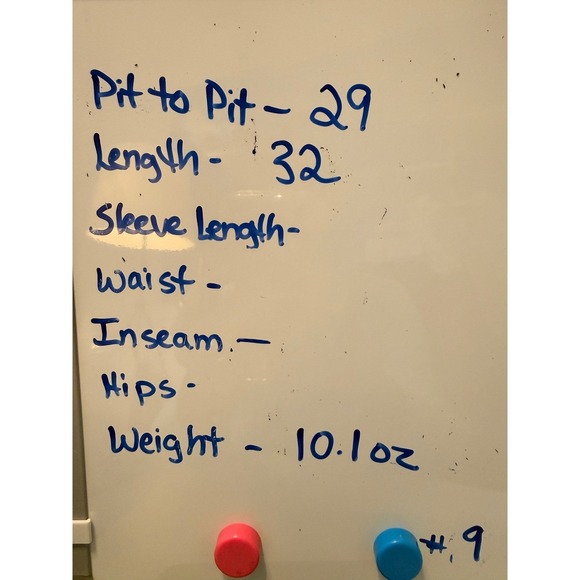 Pit to Pit - 29
Length - 32
Sleeve Length -
Waist -
Inseam. -
Hips -
Weight - 10.1 oz
#. 9